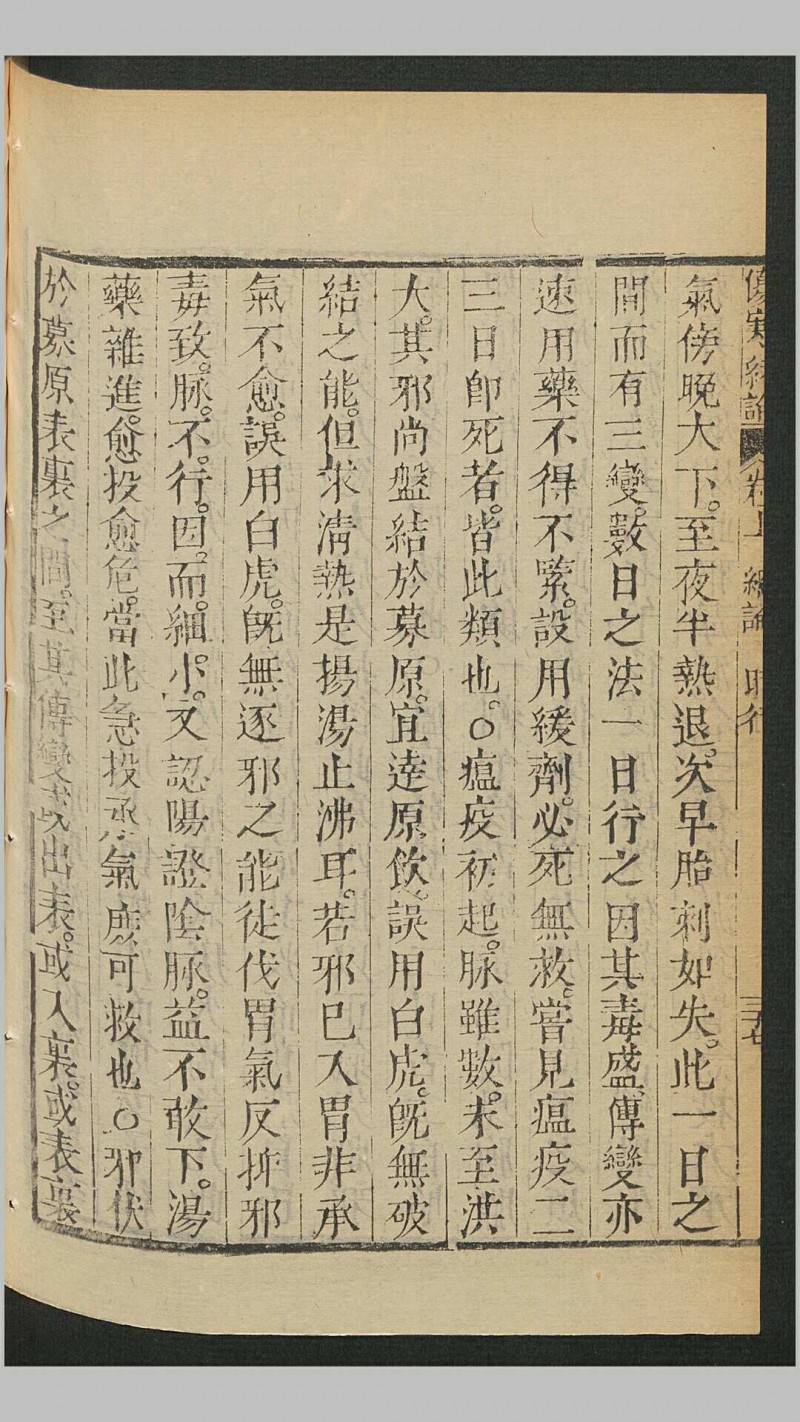 傷寒緒論 卷上 緒論 時行 三十七
氣傍晚大下。至夜半熱退。次早胎刺如失。此一日之
間而有三變。數日之法一日行之因其毒盛。傳變亦
速用藥不得不緊。設用緩劑。必死無救。嘗見瘟疫二
三日即死者。皆此類也。○瘟疫初起。脉雖數。未至洪
大。其邪尚盤結於募原。宜達原飲。誤用白虎。旣無破
結之能。但求清熱是揚湯止沸耳。若邪已入胃非承
氣不愈。誤用白虎。旣無逐邪之能徒伐胃氣反抑邪
毒致。脉。不。行。因。而。細。小。又認陽證陰脉。益不敢下。湯
藥雜進。愈投愈危。當此急投承氣庶可救也○邪伏
於募原表裏之間。至其傳變或出表。或入裏。或表裏